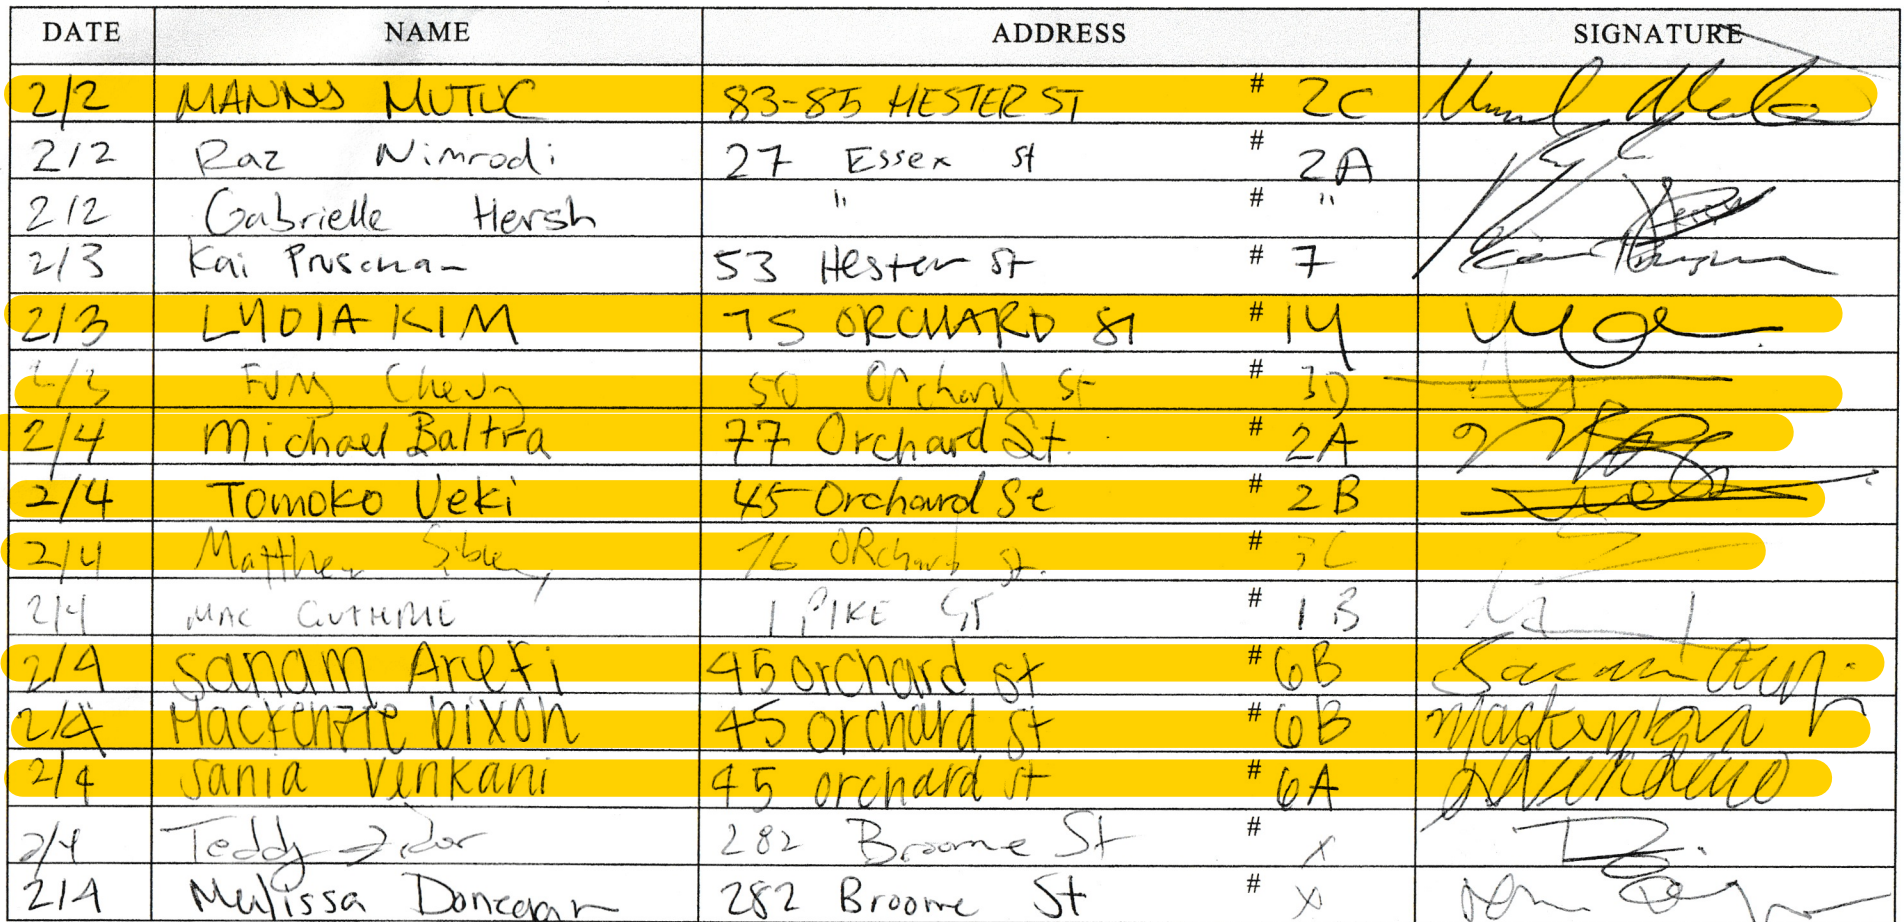 DATE NAME ADDRESS SIGNATURE
2/2 MANNY MUTUC 83-85 HESTER ST # 2C
2/2 Raz Nimrodi 27 Essex st # 2A
2/2 Gabrielle Hersh " # "
2/3 Kai 53 Hester st # 7
2/3 LYDIA KIM 75 ORCHARD ST # 14
2/3 Fung 50 Orchard St # 3D
2/4 Michael Baltra 77 Orchard St. # 2A
2/4 Tomoko Ueki 45 Orchard St # 2B
2/4 Matthew Sibley 76 ORchard st. # 3C
2/4 MAC GUTHRIE 1 PIKE ST # 1B
2/4 Sanam Arefi 45 orchard st # 6B
2/4 Mackenzie Dixon 45 orchard st # 6B
2/4 Sania Venkani 45 orchard st # 6A
2/4 Teddy 282 Broome St # X
2/4 Melissa Donegan 282 Broome St # X